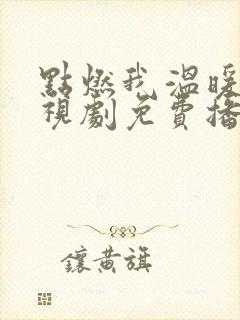 點燃我溫暖
視劇免費播
鑲黃旗